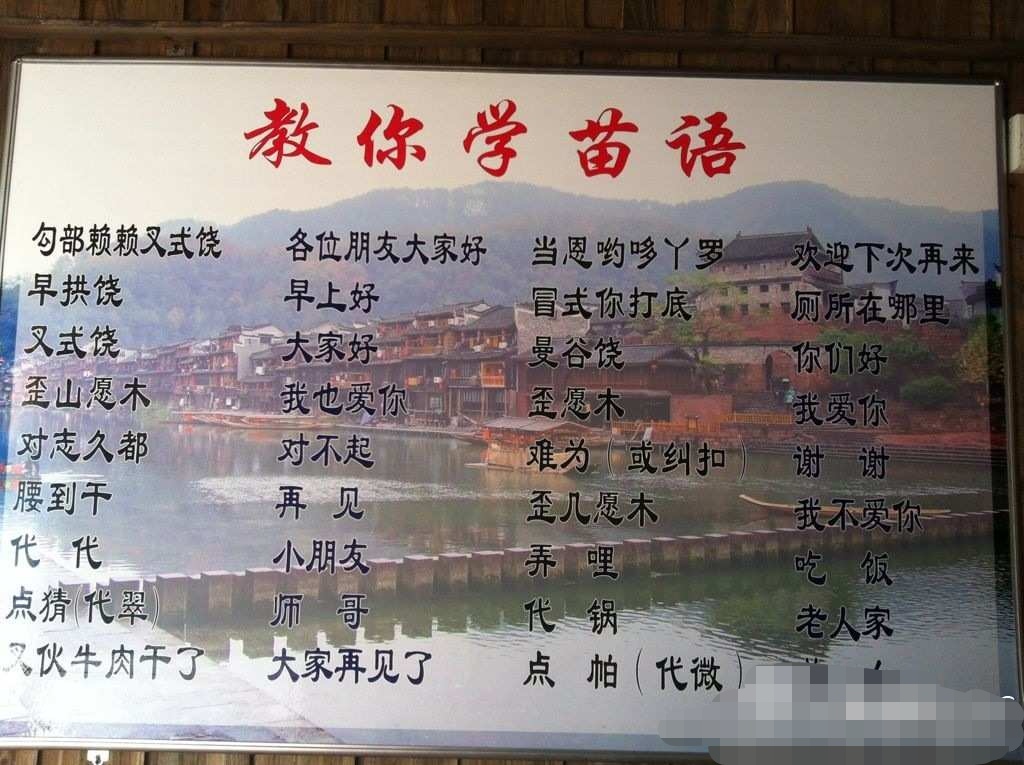 教你学苗语
勾部赖赖叉式饶 各位朋友大家好 当恩哟哆丫罗 欢迎下次再来
早拱饶 早上好 冒式你打底 厕所在哪里
叉式饶 大家好 曼谷饶 你们好
歪山愿木 我也爱你 歪愿木 我爱你
对志久都 对不起 难为(或纠扣) 谢 谢
腰到干 再 见 歪几愿木 我不爱你
代 代 小朋友 弄 哩 吃 饭
点猜(代翠) 帅 哥 代 锅 老人家
叉伙牛肉干了 大家再见了 点 帕(代微)